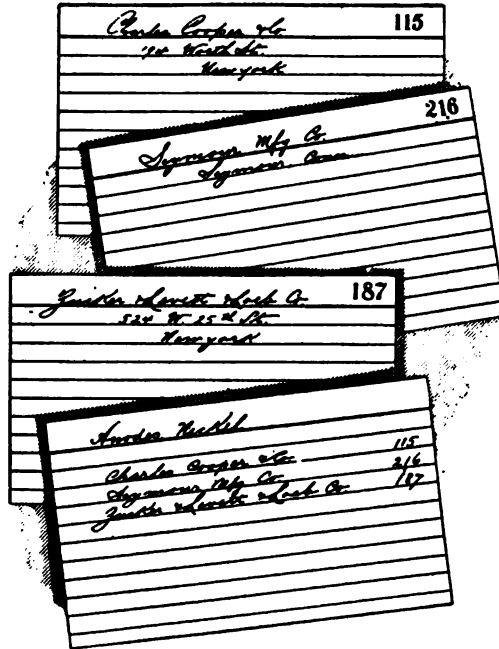 115
Charles Cooper & Co
194 Worth St.
New york
216
Seymour Mfg Co.
Seymour, Conn
187
Zucker & Levett & Loeb Co.
524 W. 25th St.
New york
Anodes Nickel
Charles Cooper & Co. 115
Seymour Mfg Co. 216
Zucker & Levett & Loeb Co. 187